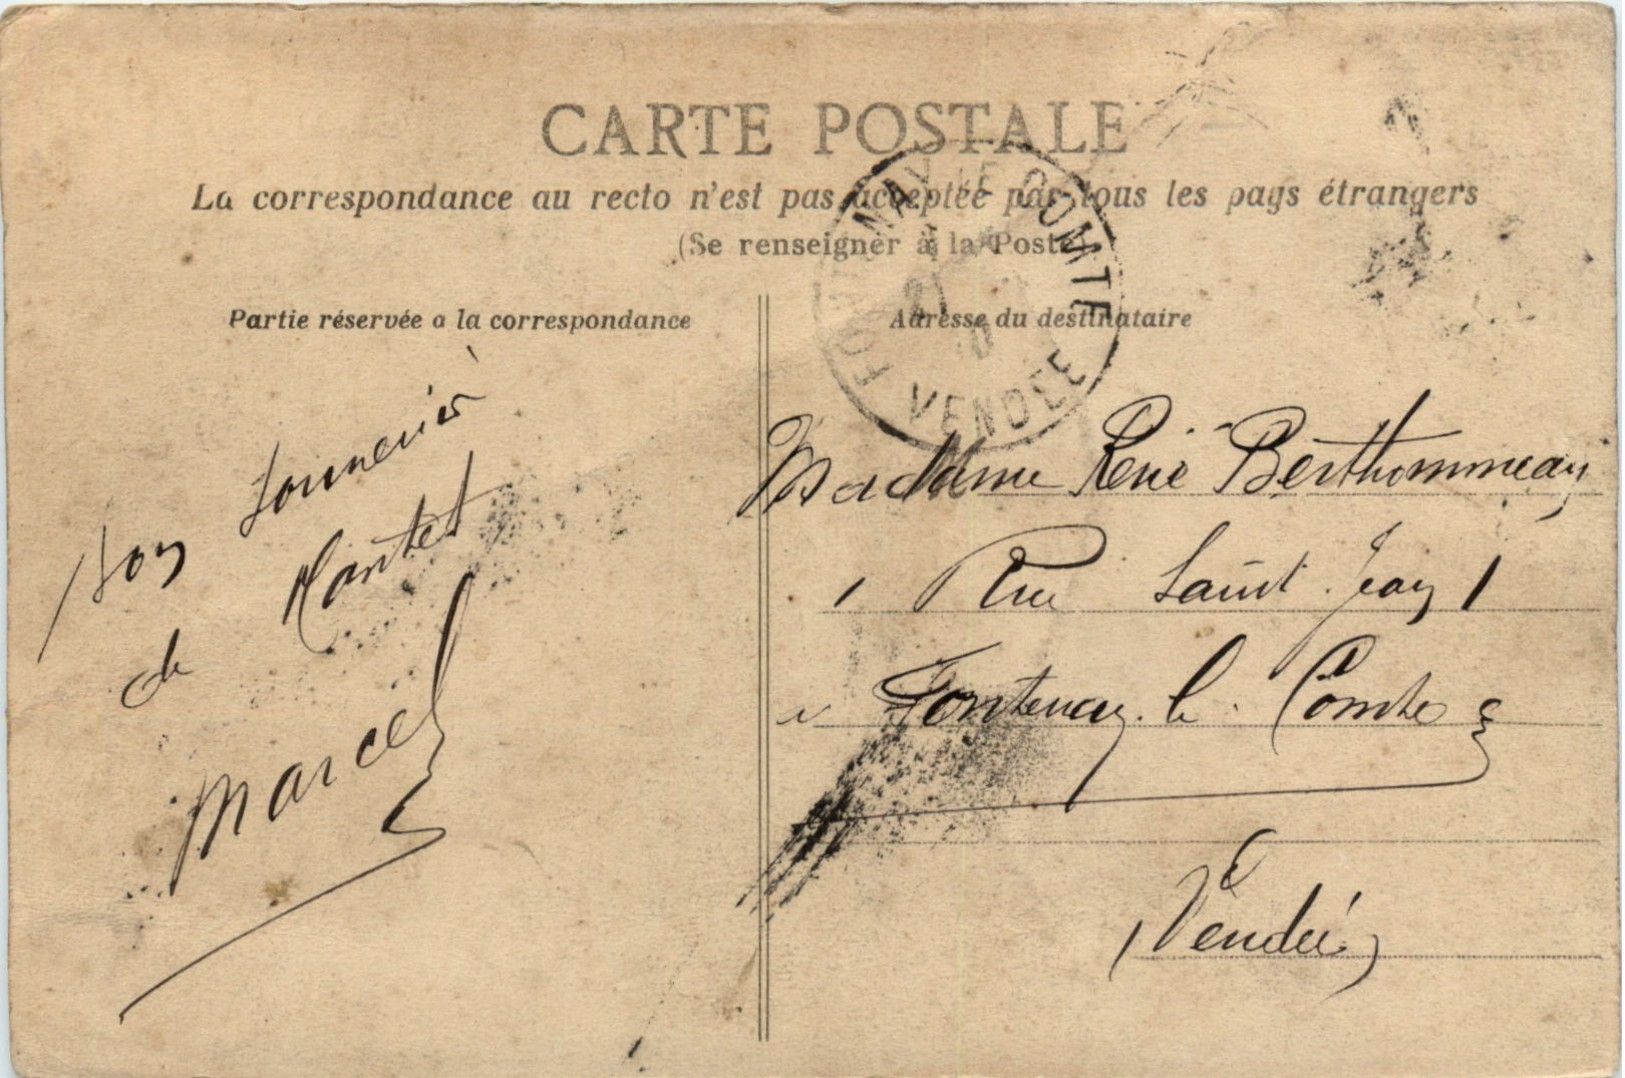 CARTE POSTALE
La correspondance au recto n'est pas acceptée par tous les pays étrangers
(Se renseigner à la Poste)
Partie réservée a la correspondance
Bon souvenir
de Nantes
Marcel
Adresse du destinataire
FONTENAY-LE-COMTE
VENDÉE
Madame René Berthommeau
Rue Saint Jean
Fontenay le Comte
Vendée